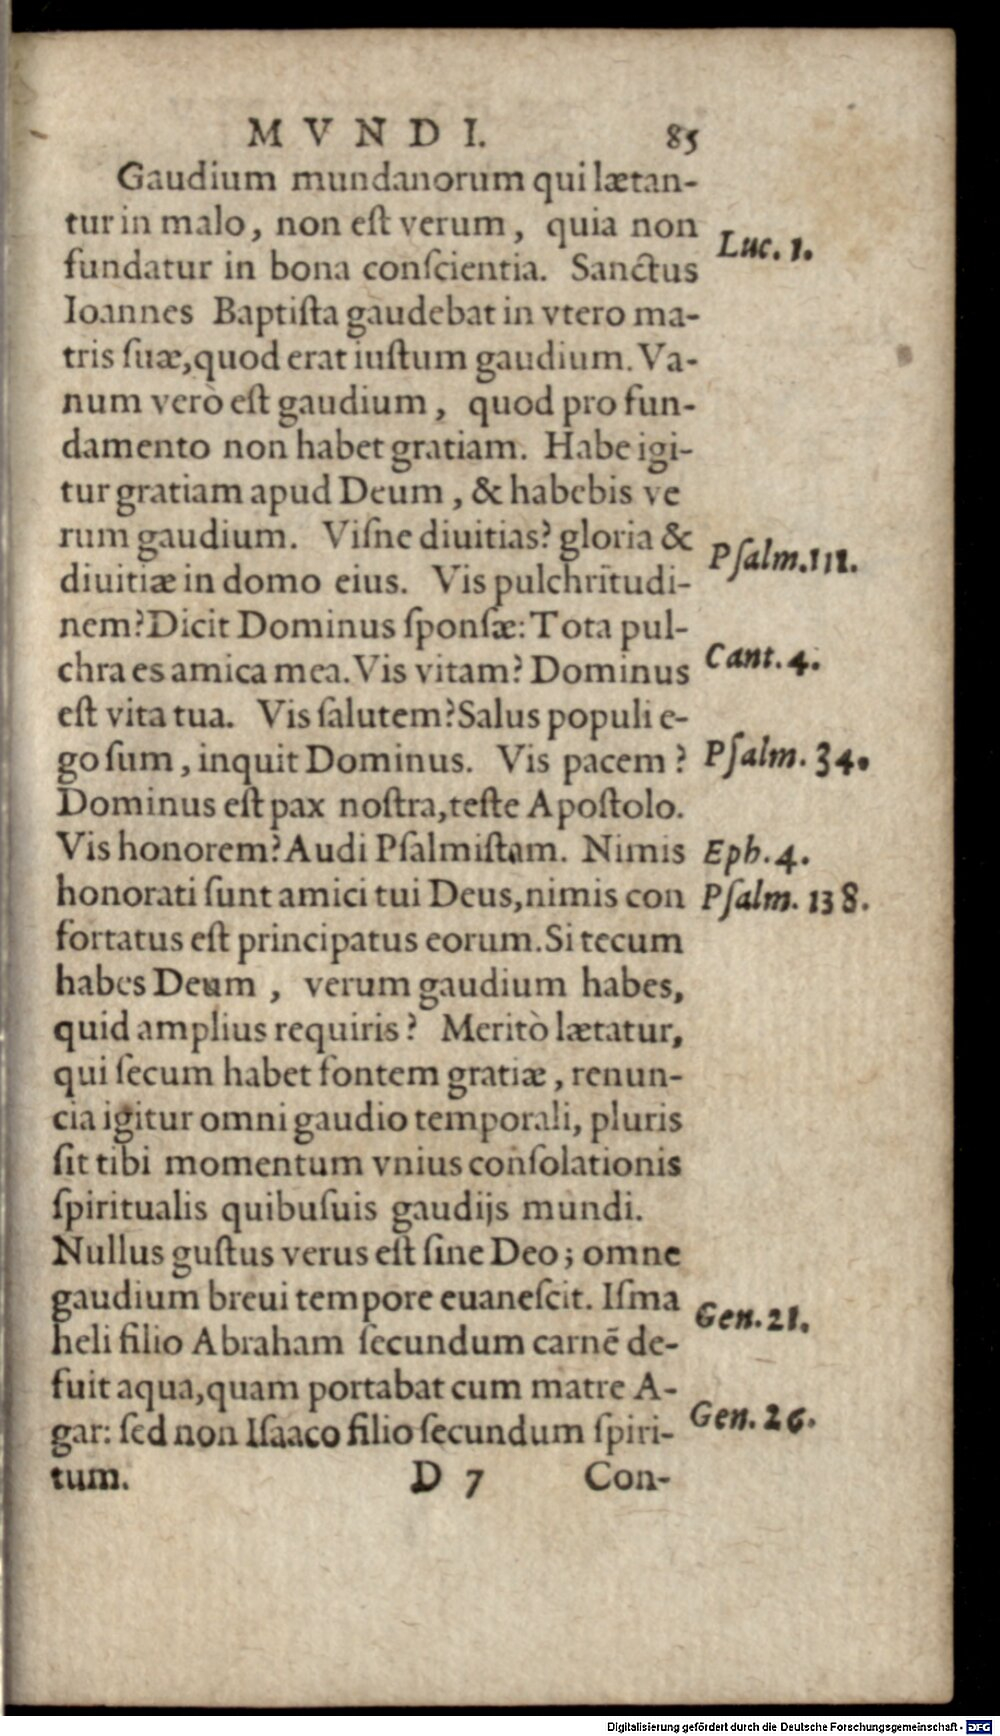 MVNDI. 85
Gaudium mundanorum qui lætan-
tur in malo, non est verum, quia non
Luc. 1.
fundatur in bona conſcientia. Sanctus
Ioannes Baptiſta gaudebat in vtero ma-
tris ſuæ, quod erat iuſtum gaudium. Va-
num verò eſt gaudium, quod pro fun-
damento non habet gratiam. Habe igi-
tur gratiam apud Deum, & habebis ve
rum gaudium. Viſne diuitias? gloria &
Pſalm. 111.
diuitiæ in domo eius. Vis pulchritudi-
nem? Dicit Dominus ſponſæ: Tota pul-
chra es amica mea. Vis vitam? Dominus
Cant. 4.
eſt vita tua. Vis ſalutem? Salus populi e-
go ſum, inquit Dominus. Vis pacem?
Pſalm. 34.
Dominus eſt pax noſtra, teſte Apoſtolo.
Vis honorem? Audi Pſalmiſtam. Nimis
Eph. 4.
honorati ſunt amici tui Deus, nimis con
Pſalm. 138.
fortatus eſt principatus eorum. Si tecum
habes Deum, verum gaudium habes,
quid amplius requiris? Meritò lætatur,
qui ſecum habet fontem gratiæ, renun-
cia igitur omni gaudio temporali, pluris
ſit tibi momentum vnius conſolationis
ſpiritualis quibuſuis gaudijs mundi.
Nullus guſtus verus eſt ſine Deo; omne
gaudium breui tempore euaneſcit. Iſma
Gen. 21.
heli filio Abraham ſecundum carnē de-
fuit aqua, quam portabat cum matre A-
Gen. 26.
gar: ſed non Iſaaco filio ſecundum ſpiri-
tum. D 7 Con-
Digitalisierung gefördert durch die Deutsche Forschungsgemeinschaft - DFG